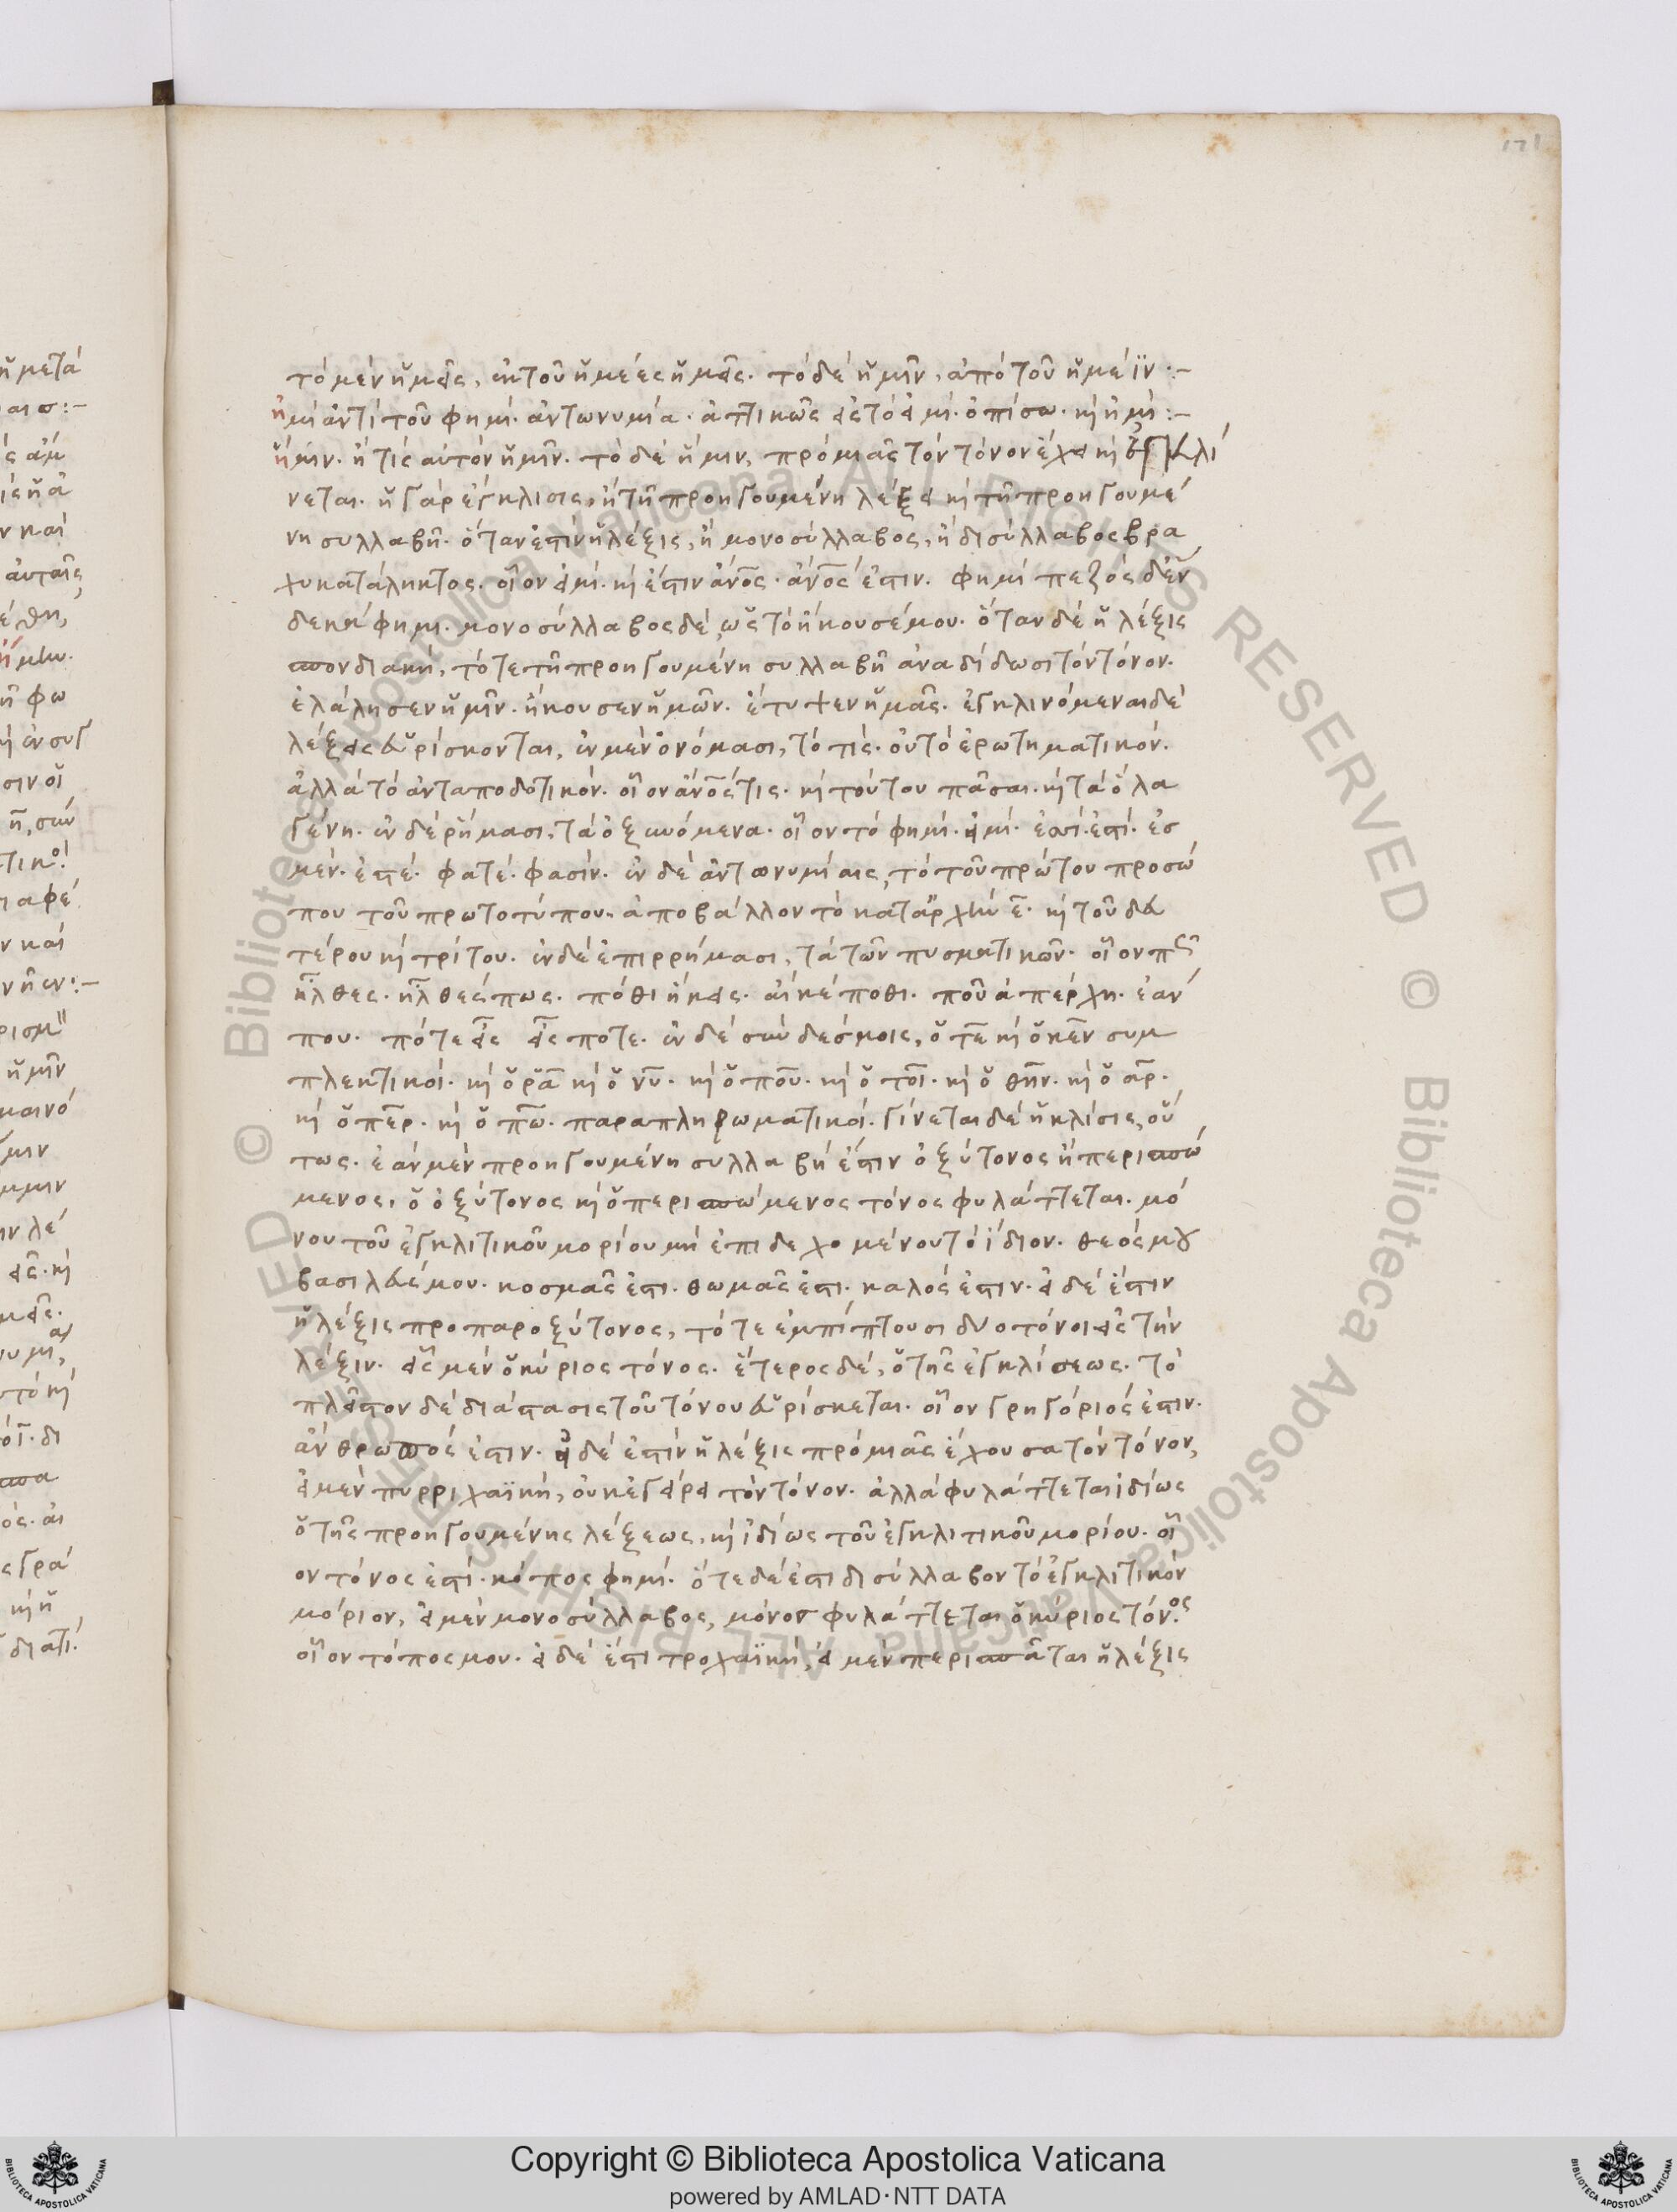 171
τὸ μὲν ἡμᾶς, ἐκ τοῦ ἡμέες ἡμᾶς. τὸ δὲ ἡμῖν, ἀπὸ τοῦ ἡμέϊν :–
ἠμὶ ἀντὶ τοῦ φημί. ἀντωνυμία. ἀττικῶς εἰς τὸ εἰμί. ὀπίσω. καὶ ἠμί :–
ἥμιν. ἤ τις αὐτὸν ἥμιν. τὸ δὲ ἥμιν, πρὸ μιᾶς τὸν τόνον ἔχει καὶ ἐγκλί
νεται. ἡ γὰρ ἔγκλισις, ἢ τῇ προηγουμένη λέξει καὶ τῇ προηγουμέ
νη συλλαβῇ. ὅταν ἐστὶν ἡ λέξις, ἢ μονοσύλλαβος, ἢ δισύλλαβος βρα
χυκατάληκτος. οἷον εἰμί. καὶ ἔστιν ἄνος. ἄνός ἐστιν. φημὶ πεζὸς δὲν
δεκά φημι. μονοσύλλαβος δὲ, ὡς τὸ ἤκουσέ μου. ὅταν δὲ ἡ λέξις
σπονδιακή, τότε τῇ προηγουμένη συλλαβῇ ἀναδίδωσι τὸν τόνον.
ἐλάλησεν ἡμῖν. ἤκουσεν ἡμῶν. ἔτυψεν ἡμᾶς. ἐγκλινόμεναι δὲ
λέξεις εὑρίσκονται, ἐν μὲν ὀνόμασι, τὸ τίς. οὐ τὸ ἐρωτηματικόν.
ἀλλὰ τὸ ἀνταποδοτικόν. οἷον ἄνός τις. καὶ τούτου πᾶσαι. καὶ τὰ ὅλα
γένη. ἐν δὲ ῥήμασι, τὰ ὀξυνόμενα. οἷον τὸ φημί. εἰμί. ἐσσί. ἐστί. ἐσ
μέν. ἐστέ. φατέ. φασίν. ἐν δὲ ἀντωνυμίαις, τὸ τοῦ πρώτου προσώ
που τοῦ πρωτοτύπου. ἀποβάλλον τὸ κατ' ἀρχὴν ε. καὶ τοῦ δευ
τέρου καὶ τρίτου. ἐν δὲ ἐπιρρήμασι, τὰ τῶν πυσματικῶν. οἷον πῶς
ἦλθες. ἦλθές πως. πόθι ἥκεις. αἴ κέ ποθι. ποῦ ἀπέρχη. ἐάν
που. πότε εἶς εἶς ποτε. ἐν δὲ συνδέσμοις, ὁ τε καὶ ὁ κεν συμ
πλεκτικοί. καὶ ὁ ρα καὶ ὁ νυ. καὶ ὁ που. καὶ ὁ τοι. καὶ ὁ θην. καὶ ὁ αρ.
καὶ ὁ περ. καὶ ὁ πω. παραπληρωματικοί. γίνεται δὲ ἡ κλίσις, οὕ
τως. ἐὰν μὲν προηγουμένη συλλαβή ἐστιν ὀξύτονος ἢ περισπώ
μενος, ὁ ὀξύτονος καὶ ὁ περισπώμενος τόνος φυλάττεται. μό
νου τοῦ ἐγκλιτικοῦ μορίου μὴ ἐπιδεχομένου τὸ ἴδιον. θεός μου
βασιλεύς μου. κοσμᾶς ἐστι. θωμᾶς ἐστι. καλός ἐστιν. εἰ δέ ἐστιν
ἡ λέξις προπαροξύτονος, τότε ἐμπίπτουσι δύο τόνοι εἰς τὴν
λέξιν. εἷς μὲν ὁ κύριος τόνος. ἕτερος δὲ, ὁ τῆς ἐγκλίσεως. τὸ
πλεῖστον δὲ διάστασις τοῦ τόνου εὑρίσκεται. οἷον γρηγόριός ἐστιν.
ἄνθρωπός ἐστιν. εἰ δέ ἐστιν ἡ λέξις πρὸ μιᾶς ἔχουσα τὸν τόνον,
εἰ μὲν πυρριχαϊκή, οὐκ ἐγείρει τὸν τόνον. ἀλλὰ φυλάττεται ἰδίως
ὁ τῆς προηγουμένης λέξεως, καὶ ἰδίως τοῦ ἐγκλιτικοῦ μορίου. οἷ
ον τόνος ἐστί. κόπος φημί. ὅτε δέ ἐστι δισύλλαβον τὸ ἐγκλιτικὸν
μόριον, εἰ μὲν μονοσύλλαβος, μόνον φυλάττεται ὁ κύριος τόνος
οἷον τόπος μου. εἰ δέ ἐστι τροχαϊκή, εἰ μὲν περισπᾶται ἡ λέξις
Copyright © Biblioteca Apostolica Vaticana
powered by AMLAD·NTT DATA